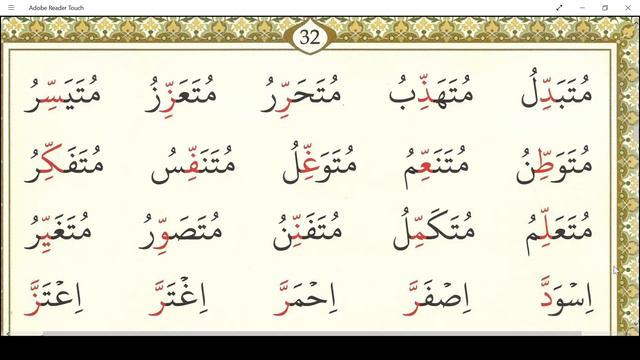 Adobe Reader Touch
32
مُتَبَدِّلُ مُتَهَذِّبُ مُتَحَرِّرُ مُتَعَزِّزُ مُتَيَسِّرُ
مُتَوَطِّنُ مُتَنَعِّمُ مُتَوَغِّلُ مُتَنَفِّسُ مُتَفَكِّرُ
مُتَعَلِّمُ مُتَكَمِّلُ مُتَفَنِّنُ مُتَصَوِّرُ مُتَغَيِّرُ
اِسْوَدَّ اِصْفَرَّ اِحْمَرَّ اِغْتَرَّ اِعْتَزَّ